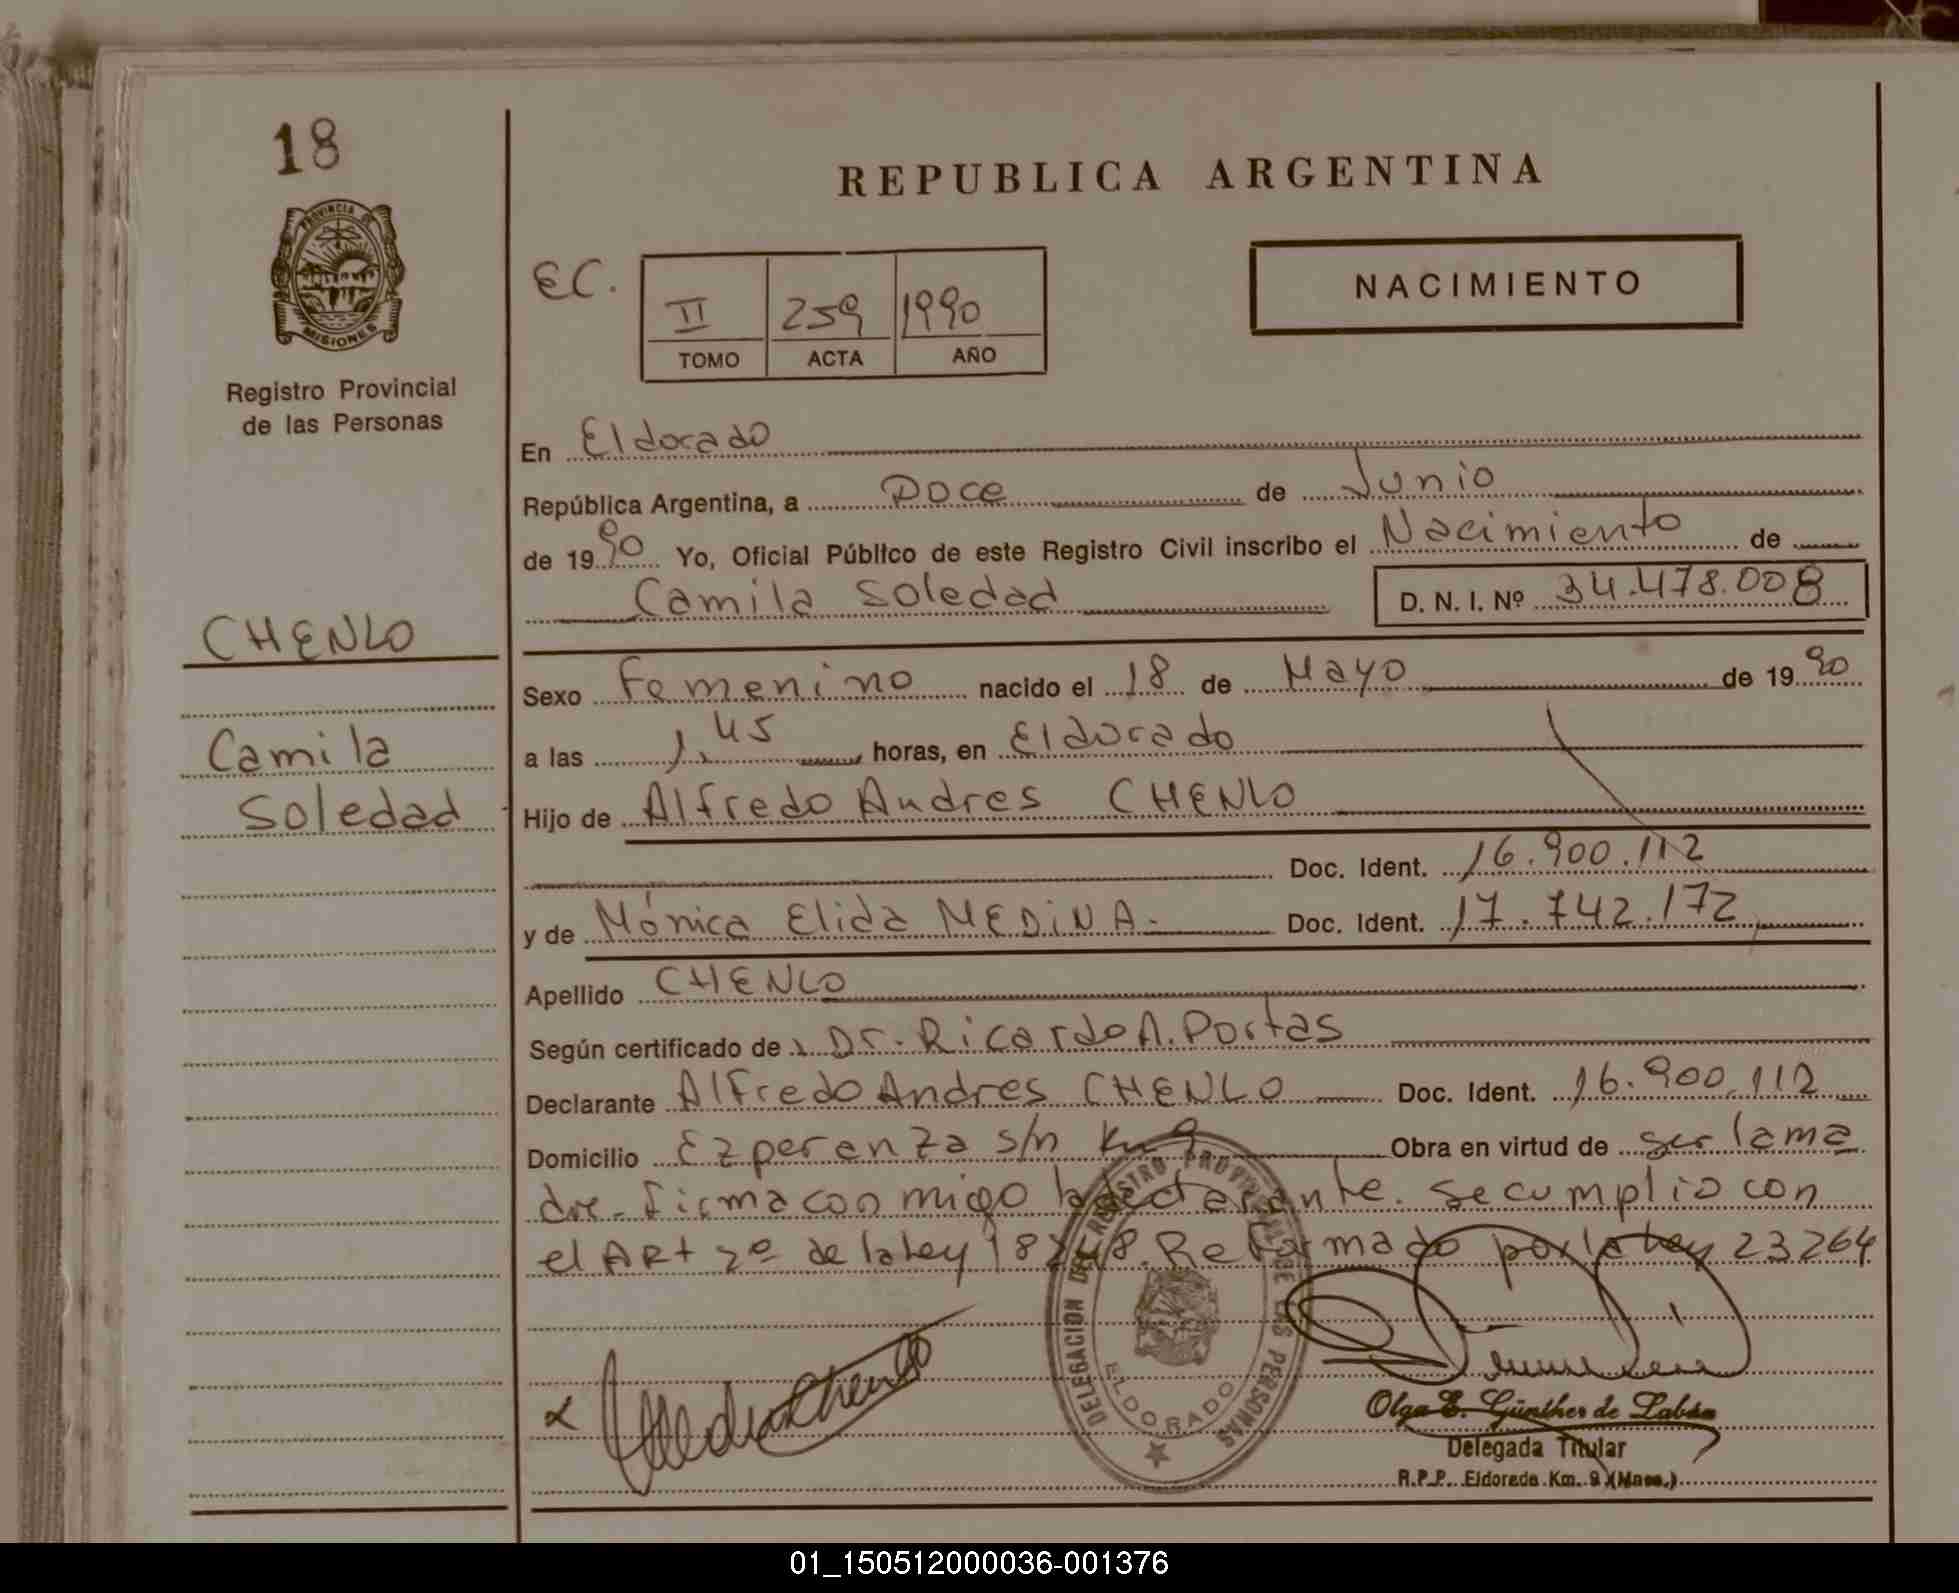 18
PROVINCIA DE
MISIONES
Registro Provincial
de las Personas
CHENLO
Camila
Soledad
REPUBLICA ARGENTINA
NACIMIENTO
EC.
II 259 1990
TOMO ACTA AÑO
En Eldorado
República Argentina, a Doce de Junio
de 1990 Yo, Oficial Público de este Registro Civil inscribo el Nacimiento de
Camila Soledad D. N. I. Nº 34.478.008
Sexo Femenino nacido el 18 de Mayo de 1990
a las 1,45 horas, en Eldorado
Hijo de Alfredo Andres CHENLO
Doc. Ident. 16.900.112
y de Mónica Elida MEDINA.- Doc. Ident. 17.742.172
Apellido CHENLO
Según certificado de Dr. Ricardo A. Portas
Declarante Alfredo Andres CHENLO Doc. Ident. 16.900.112
Domicilio Ezperanza s/n Km 9 Obra en virtud de ser la ma
dre. firma con migo la declarante. se cumplio con
el ARt 2º de la Ley 18248. Reformado por la Ley 23264
DELEGACION DEL REGISTRO PROVINCIAL DE LAS PERSONAS
ELDORADO
Olga E. Günther de Labán
Delegada Titular
R.P.P. Eldorado Km. 9 (Mnes.)
01_150512000036-001376